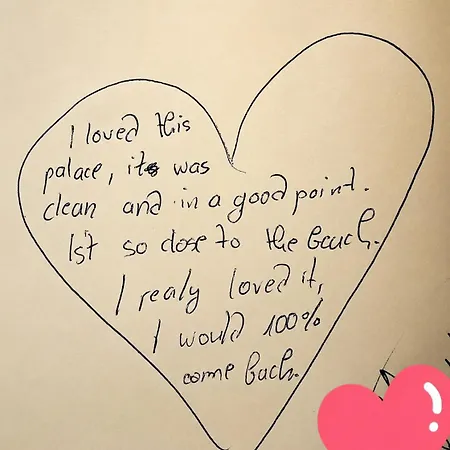 I loved this
palace, it was
clean and in a good point.
Ist so close to the beach.
I realy loved it,
I would 100%
come back.